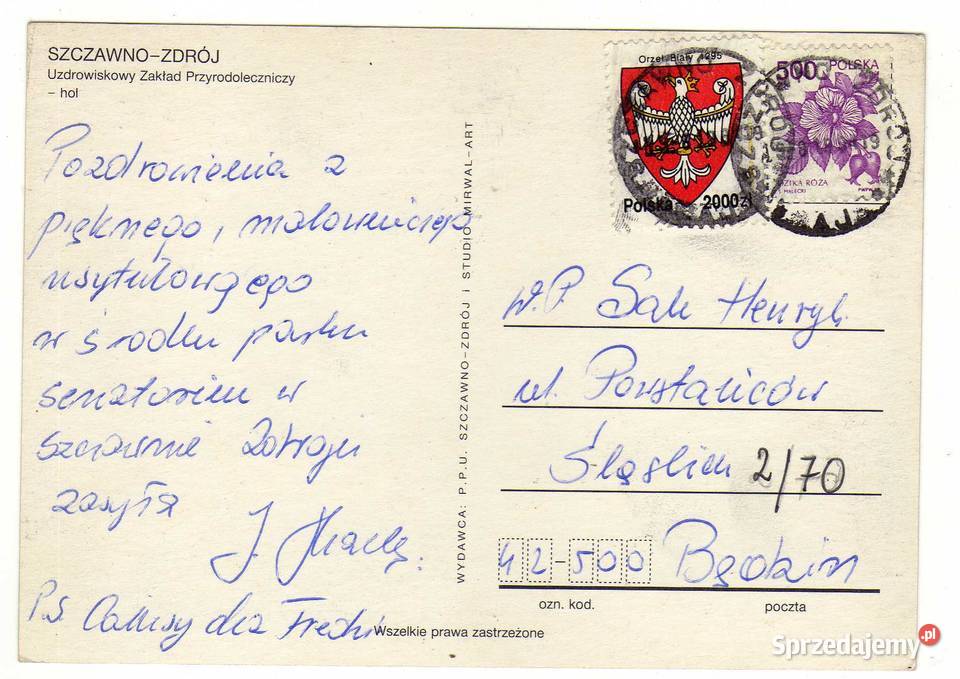 SZCZAWNO-ZDRÓJ
Uzdrowiskowy Zakład Przyrodoleczniczy
- hol
Orzeł Biały 1295
Polska 2000zł
500 POLSKA
RÓŻA
Pozdrowienia z
pięknego, malowniczo
usytułowągego
w środku parku
senatorium w
Szczawnie Zdroju
zasyła
J.
P.S. Całusy dla
WYDAWCA: P.P.U. SZCZAWNO-ZDRÓJ I STUDIO MIRWAL-ART
W.P. Sak Henryk
ul. Powstańców
Śląskich 2/70
42-500 Będzin
ozn. kod. poczta
Wszelkie prawa zastrzeżone
Sprzedajemy.pl